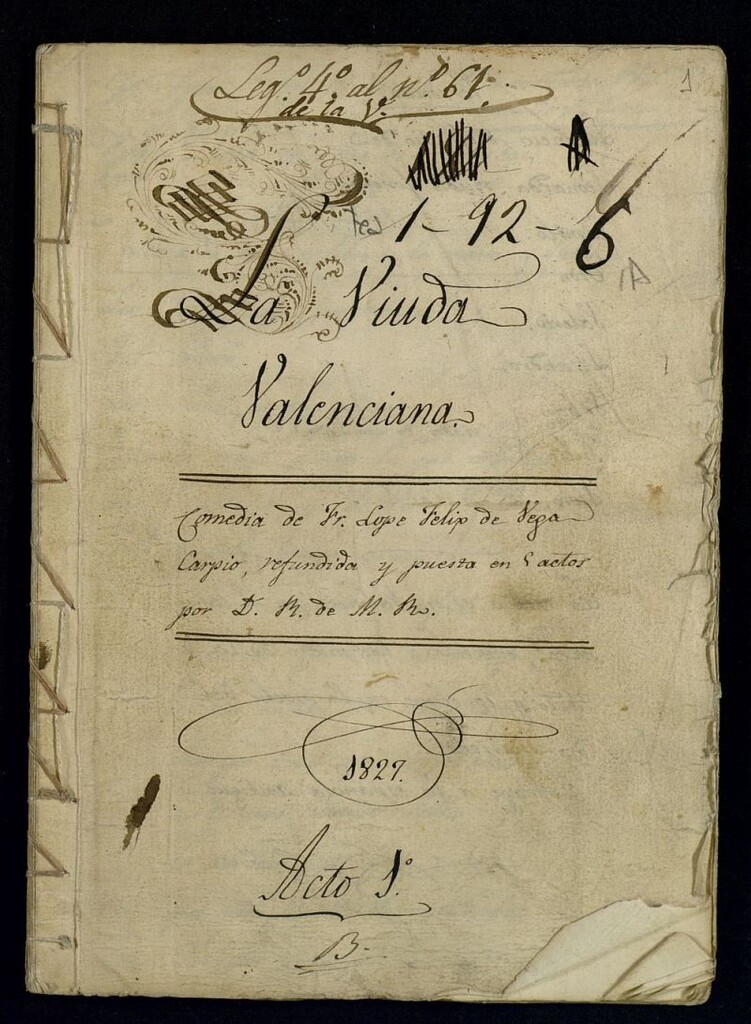 Leg.º 4.º al nº 61.
de la V.
1
1-92-6
La Viuda
Valenciana.
Comedia de Fr. Lope Felix de Vega
Carpio, refundida y puesta en 5 actos
por D. R. de M. R.
1827.
Acto 1.º
B.